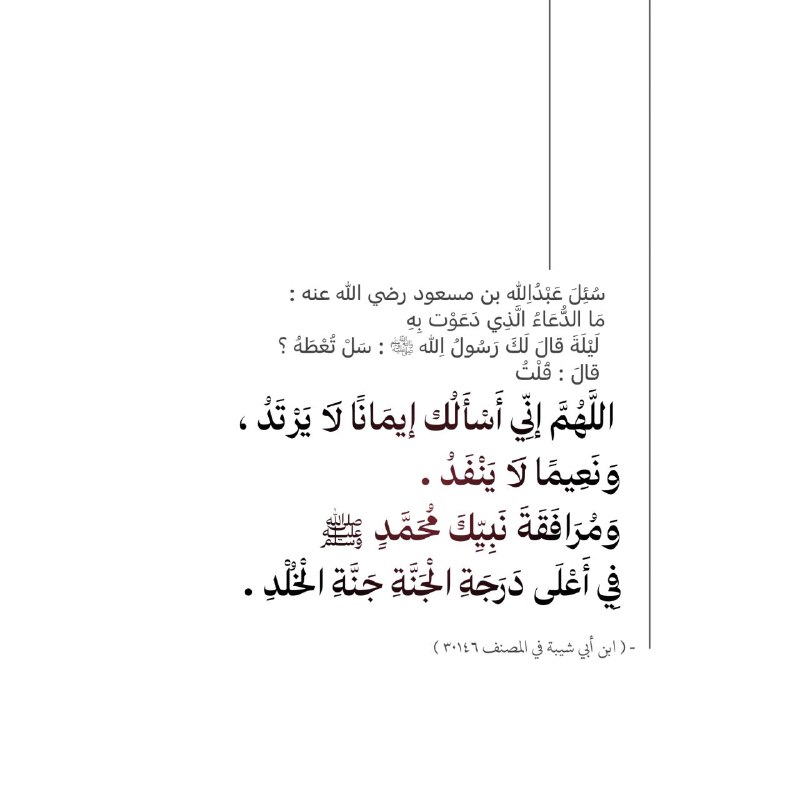 سُئِلَ عَبْدُاِلله بن مسعود رضي الله عنه :
مَا الدُّعَاءُ الَّذِي دَعَوْت بِهِ
لَيْلَةَ قالَ لَكَ رَسُولُ اِلله ﷺ : سَلْ تُعْطَهُ ؟
قالَ : قُلْتُ
اللَّهُمَّ إنِّي أَسْأَلُك إيمَانًا لَا يَرْتَدُ ،
وَنَعِيمًا لَا يَنْفَدُ .
وَمُرَافَقَةَ نَبِيِّكَ مُحَمَّدٍ ﷺ
فِي أَعْلَى دَرَجَةِ الْجَنَّةِ جَنَّةِ الْخُلْدِ .
- ( ابن أبي شيبة في المصنف ٣٠١٤٦ )